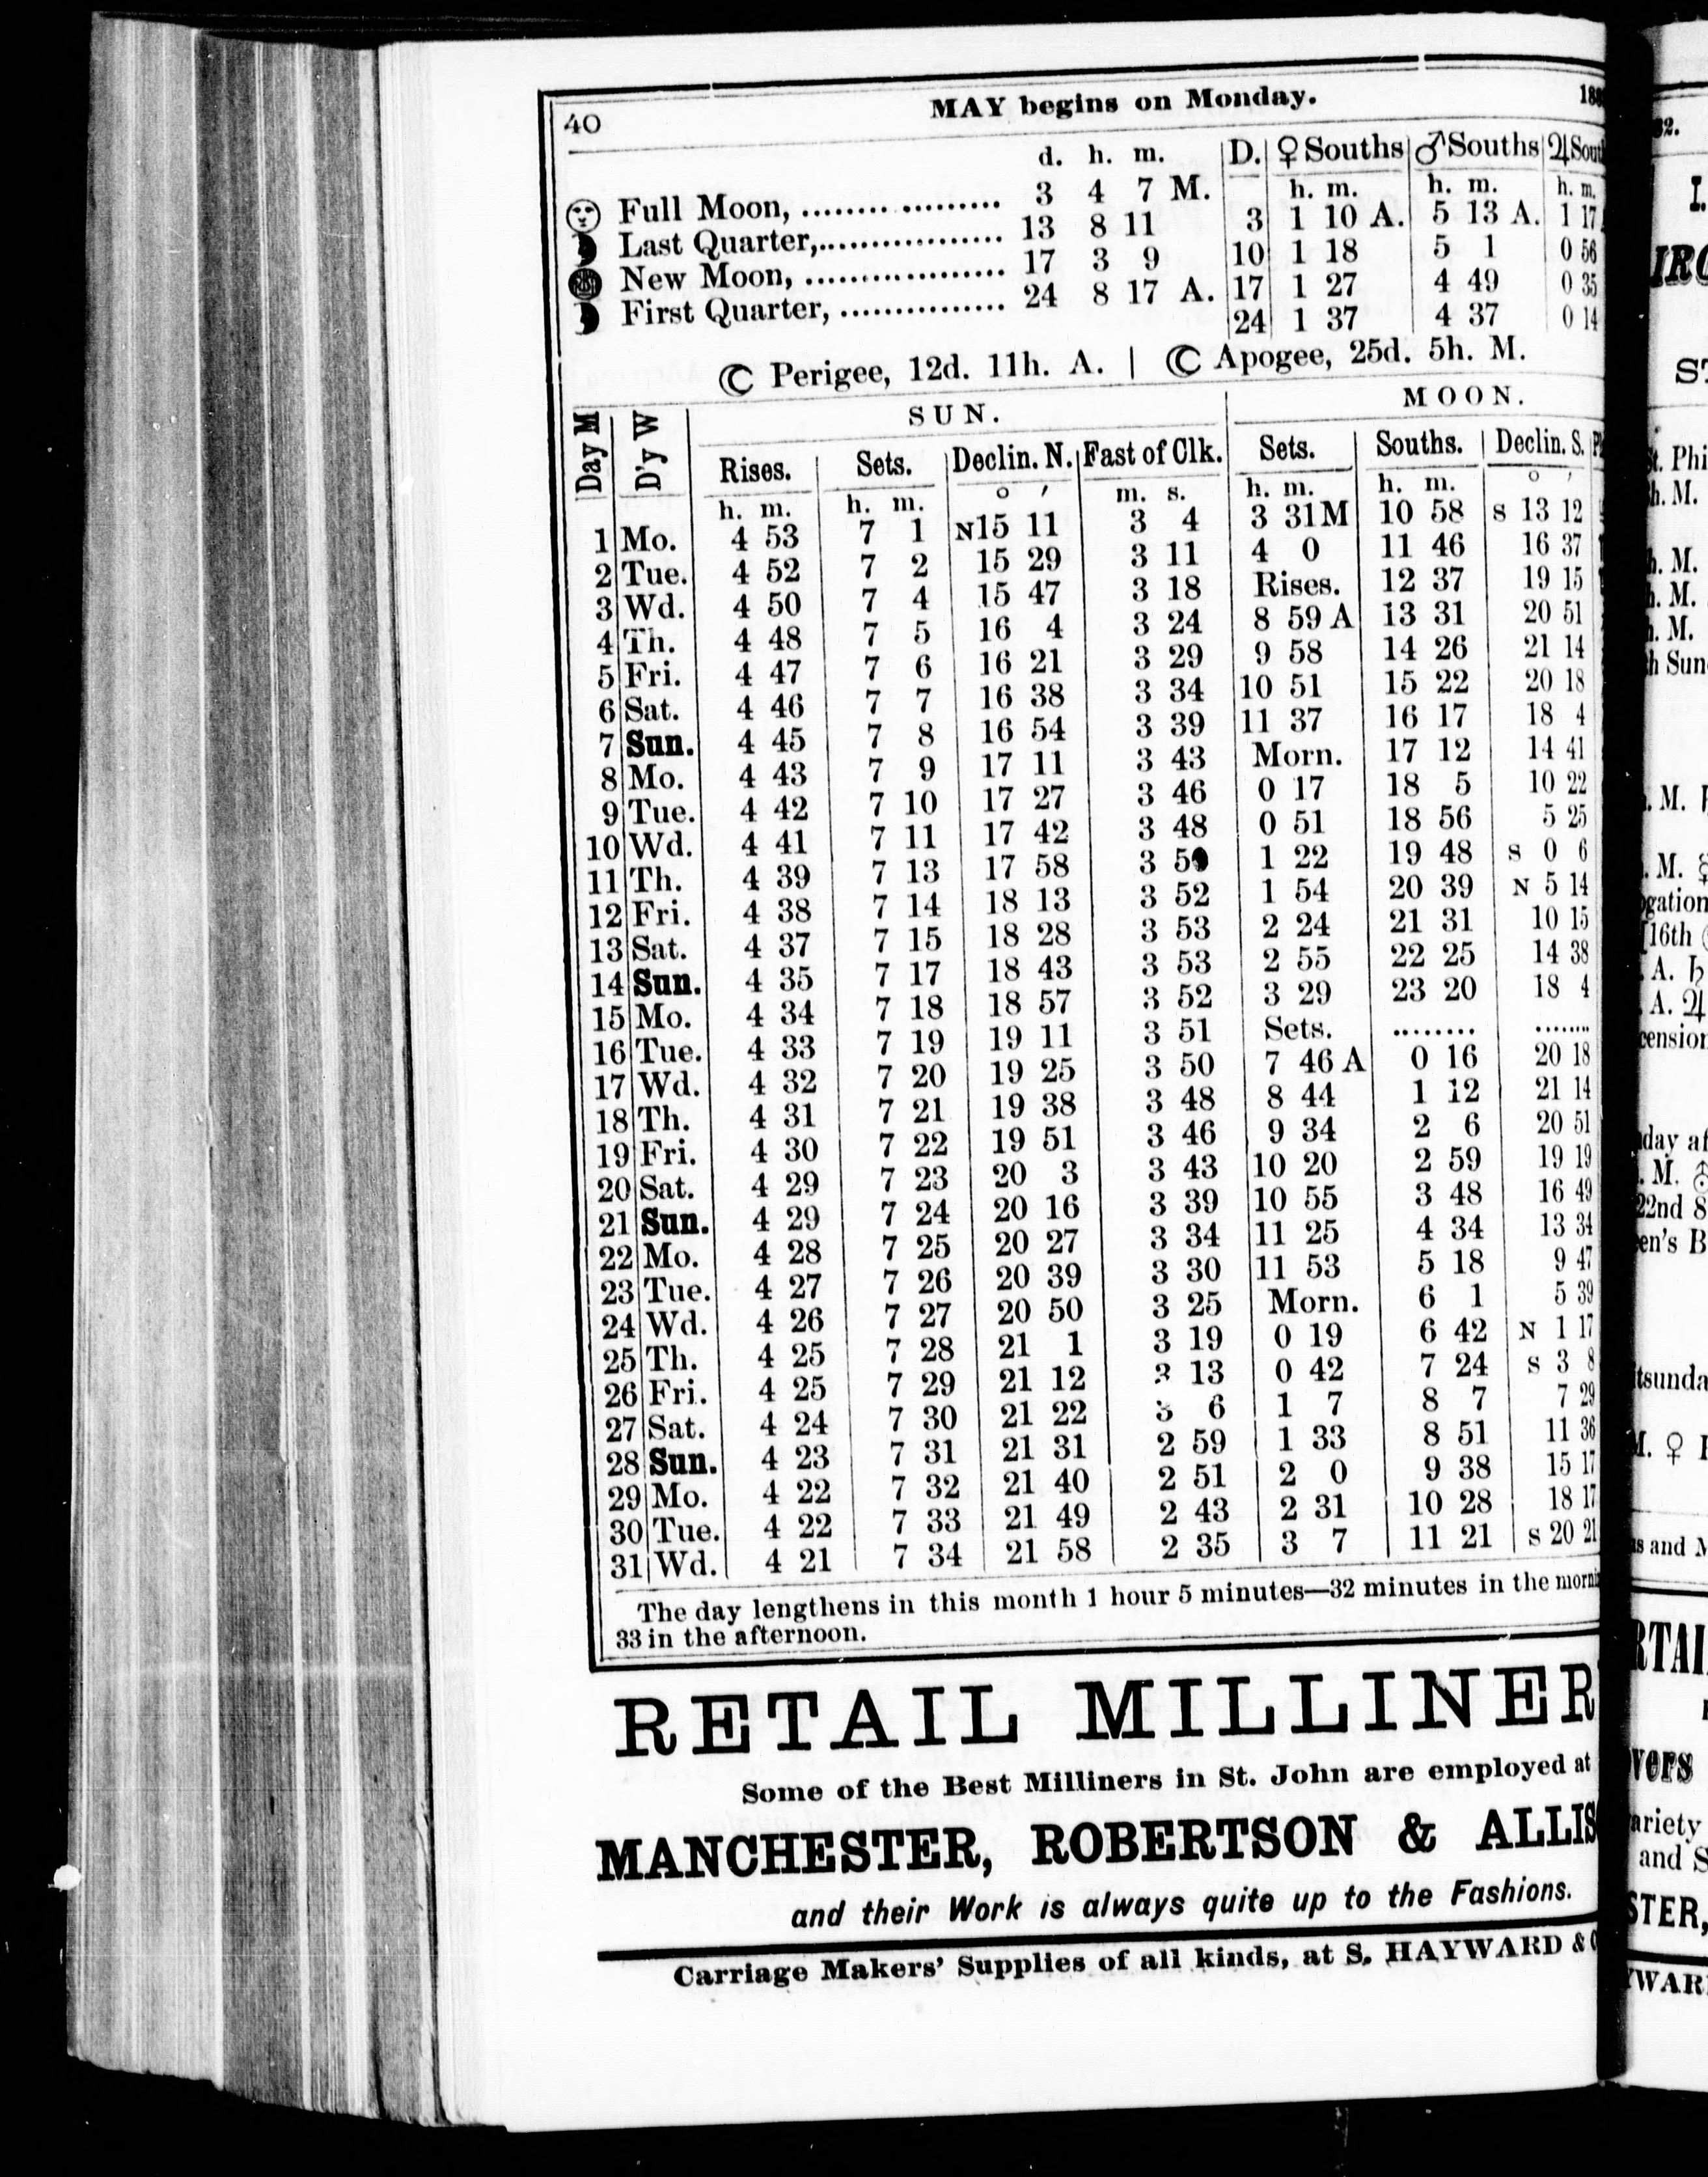 40 MAY begins on Monday. 18
d. h. m. D. ♀ Souths ♂ Souths ♃
h. m. h. m. h. m.
Full Moon, .................. 3 4 7 M. 3 1 10 A. 5 13 A. 1 17
Last Quarter,.................. 13 8 11 10 1 18 5 1 0 56
New Moon, .................. 17 3 9 17 1 27 4 49 0 35
First Quarter, ............... 24 8 17 A. 24 1 37 4 37 0 14
☾ Perigee, 12d. 11h. A. | ☾ Apogee, 25d. 5h. M.
Day M D'y W SUN. MOON.
Rises. Sets. Declin. N. Fast of Clk. Sets. Souths. Declin. S.
h. m. h. m. o ′ m. s. h. m. h. m. o ′
1 Mo. 4 53 7 1 N15 11 3 4 3 31M 10 58 S 13 12
2 Tue. 4 52 7 2 15 29 3 11 4 0 11 46 16 37
3 Wd. 4 50 7 4 15 47 3 18 Rises. 12 37 19 15
4 Th. 4 48 7 5 16 4 3 24 8 59 A 13 31 20 51
5 Fri. 4 47 7 6 16 21 3 29 9 58 14 26 21 14
6 Sat. 4 46 7 7 16 38 3 34 10 51 15 22 20 18
7 Sun. 4 45 7 8 16 54 3 39 11 37 16 17 18 4
8 Mo. 4 43 7 9 17 11 3 43 Morn. 17 12 14 41
9 Tue. 4 42 7 10 17 27 3 46 0 17 18 5 10 22
10 Wd. 4 41 7 11 17 42 3 48 0 51 18 56 5 25
11 Th. 4 39 7 13 17 58 3 50 1 22 19 48 S 0 6
12 Fri. 4 38 7 14 18 13 3 52 1 54 20 39 N 5 14
13 Sat. 4 37 7 15 18 28 3 53 2 24 21 31 10 15
14 Sun. 4 35 7 17 18 43 3 53 2 55 22 25 14 38
15 Mo. 4 34 7 18 18 57 3 52 3 29 23 20 18 4
16 Tue. 4 33 7 19 19 11 3 51 Sets. ......... ........
17 Wd. 4 32 7 20 19 25 3 50 7 46 A 0 16 20 18
18 Th. 4 31 7 21 19 38 3 48 8 44 1 12 21 14
19 Fri. 4 30 7 22 19 51 3 46 9 34 2 6 20 51
20 Sat. 4 29 7 23 20 3 3 43 10 20 2 59 19 19
21 Sun. 4 29 7 24 20 16 3 39 10 55 3 48 16 49
22 Mo. 4 28 7 25 20 27 3 34 11 25 4 34 13 34
23 Tue. 4 27 7 26 20 39 3 30 11 53 5 18 9 47
24 Wd. 4 26 7 27 20 50 3 25 Morn. 6 1 5 39
25 Th. 4 25 7 28 21 1 3 19 0 19 6 42 N 1 17
26 Fri. 4 25 7 29 21 12 3 13 0 42 7 24 S 3 8
27 Sat. 4 24 7 30 21 22 3 6 1 7 8 7 7 29
28 Sun. 4 23 7 31 21 31 2 59 1 33 8 51 11 36
29 Mo. 4 22 7 32 21 40 2 51 2 0 9 38 15 17
30 Tue. 4 22 7 33 21 49 2 43 2 31 10 28 18 17
31 Wd. 4 21 7 34 21 58 2 35 3 7 11 21 S 20 21
The day lengthens in this month 1 hour 5 minutes—32 minutes in the
33 in the afternoon.
RETAIL MILLINER
Some of the Best Milliners in St. John are employed at
MANCHESTER, ROBERTSON & ALLIS
and their Work is always quite up to the Fashions.
Carriage Makers' Supplies of all kinds, at S. HAYWARD &